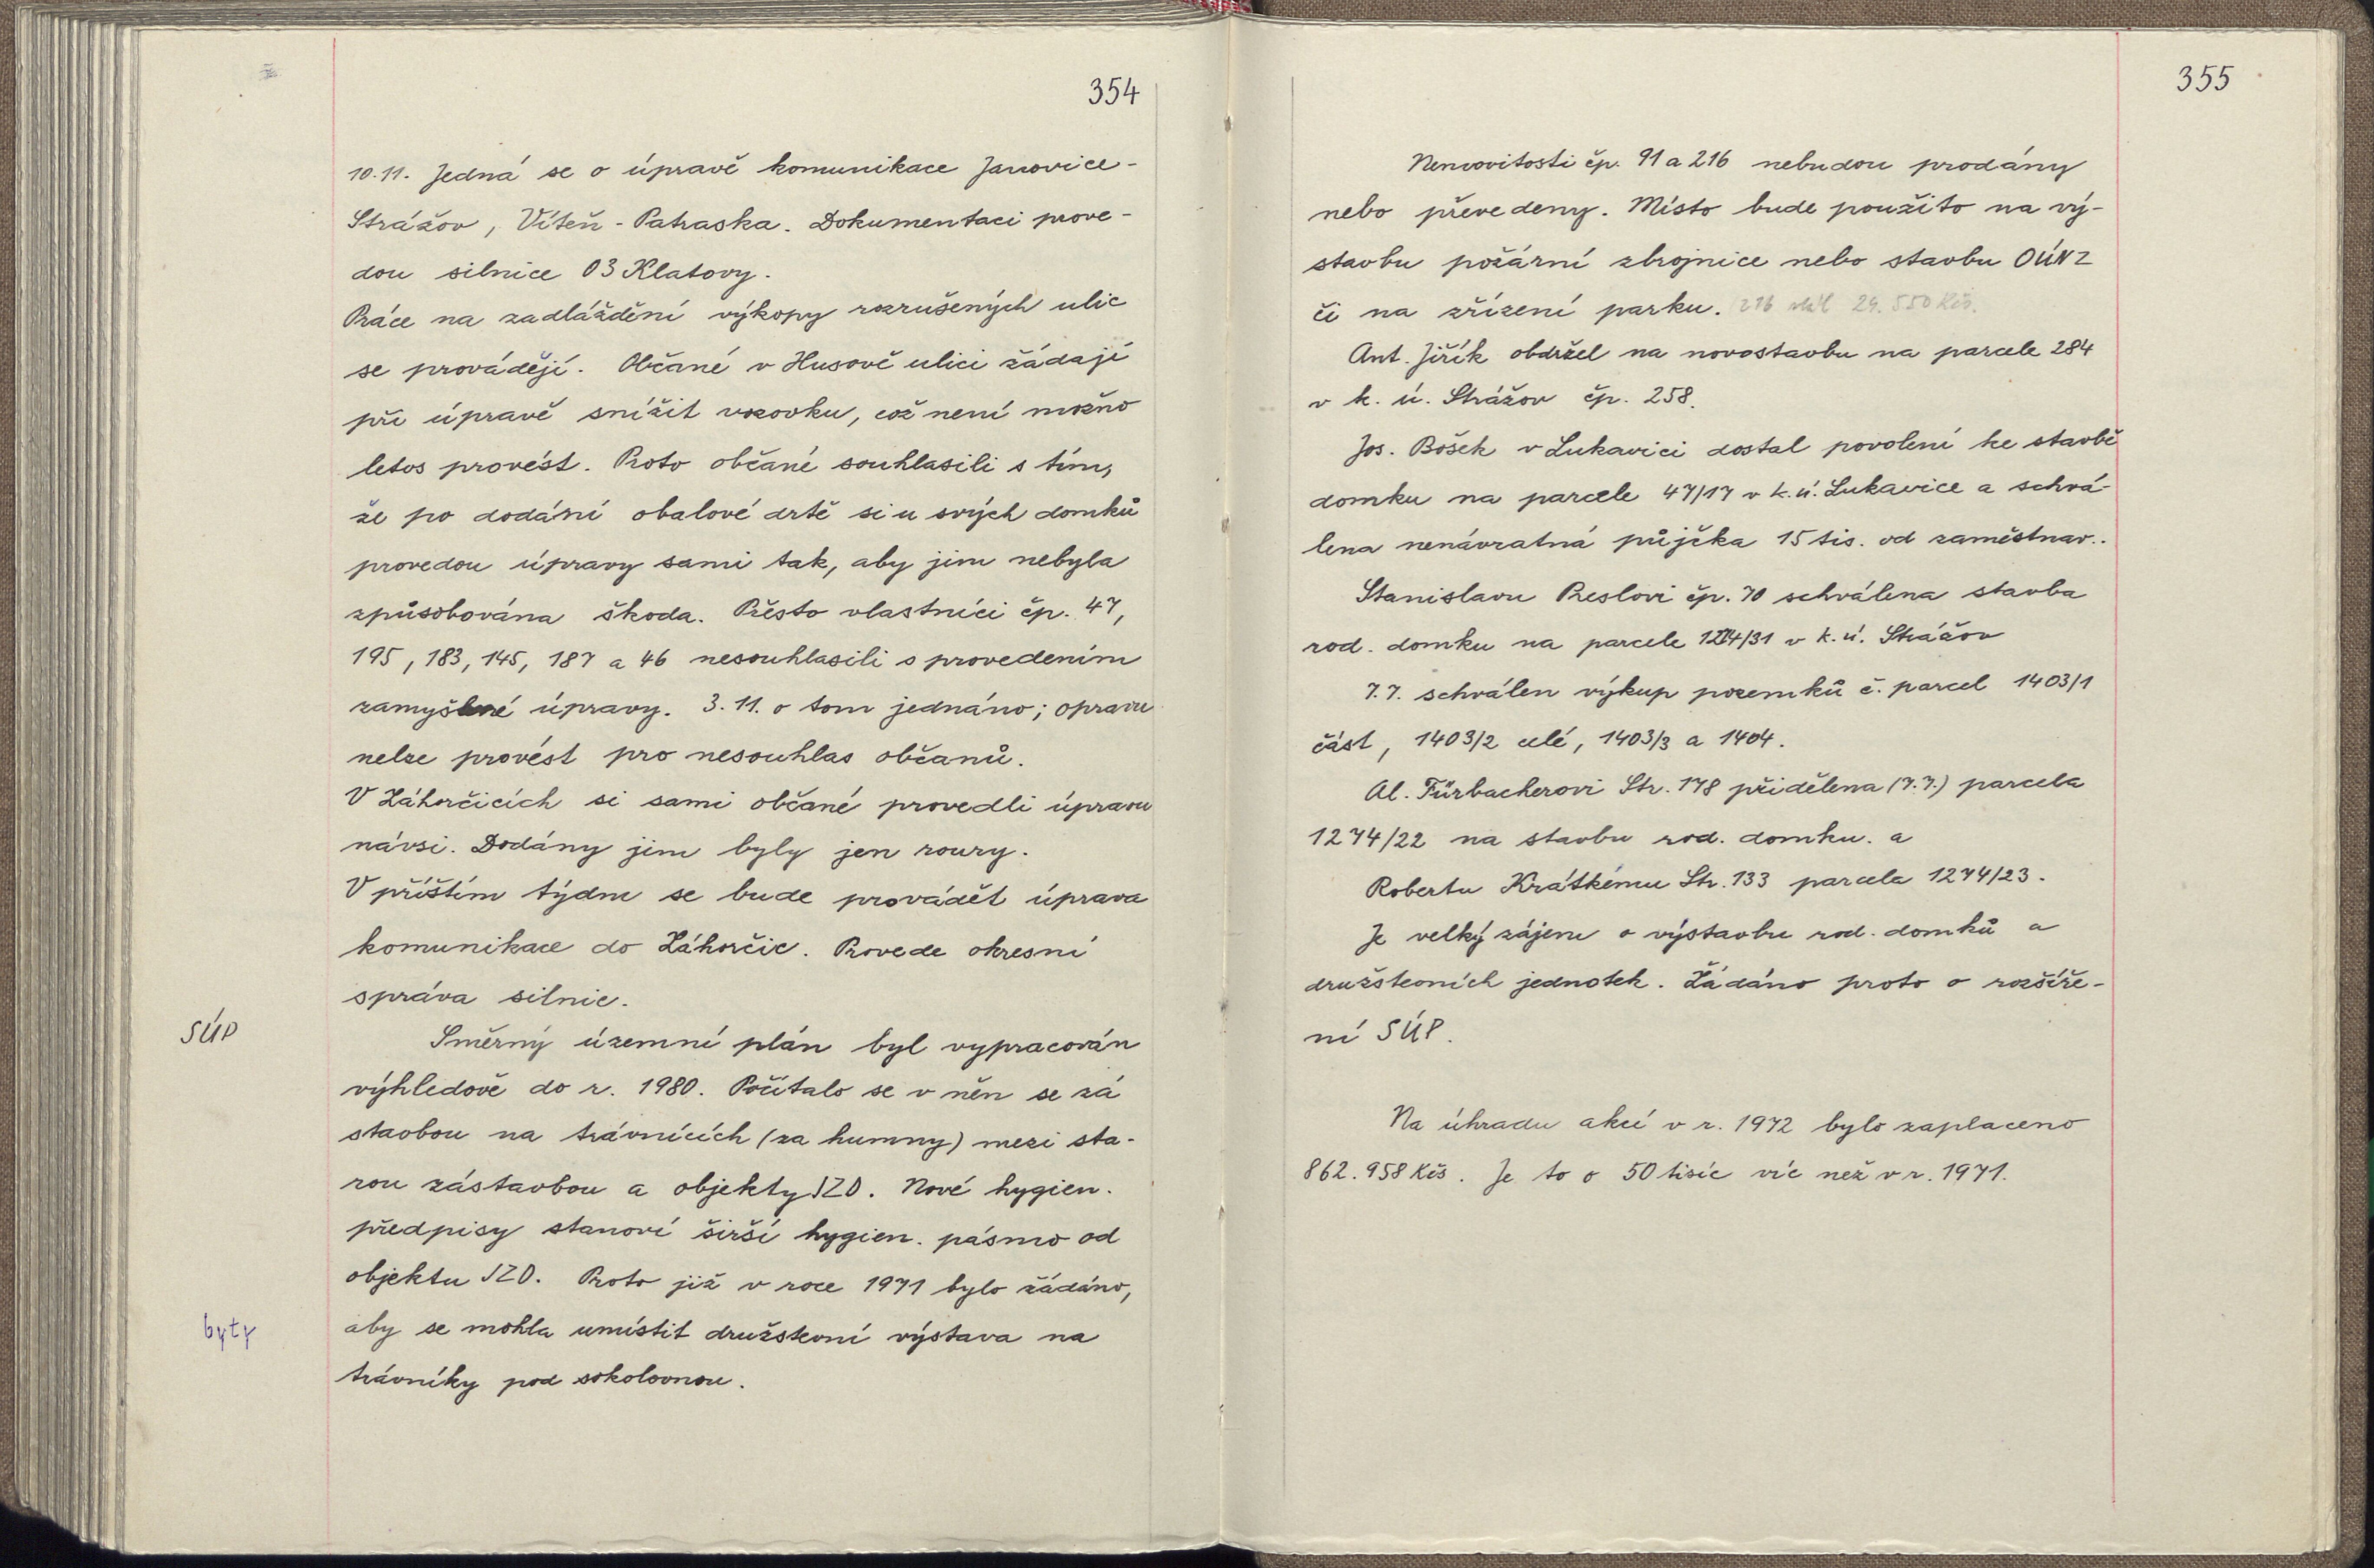 354
10.11. Jedná se o úpravě komunikace Janovice-
Strážov, Víteň - Patraska. Dokumentaci prove-
dou silnice 03 Klatovy.
Práce na zadláždění výkopy rozrušených ulic
se provádějí. Občané v Husově ulici žádají
při úpravě snížit vozovku, což není možno
letos provést. Proto občané souhlasili s tím,
že po dodání obalové drtě si u svých domků
provedou úpravy sami tak, aby jim nebyla
způsobována škoda. Přesto vlastníci čp. 47,
195, 183, 145, 187 a 46 nesouhlasili s provedením
zamyšlené úpravy. 3.11. o tom jednáno; opravu
nelze provést pro nesouhlas občanů.
V Záhorčicích si sami občané provedli úpravu
návsi. Dodány jim byly jen roury.
V příštím týdnu se bude provádět úprava
komunikace do Záhorčic. Provede okresní
správa silnic.
SÚP
Směrný územní plán byl vypracován
výhledově do r. 1980. Počítalo se v něn se zá
stavbou na trávnících (za humny) mezi sta-
rou zástavbou a objekty JZD. Nové hygien.
předpisy stanoví širší hygien. pásmo od
objektu JZD. Proto již v roce 1971 bylo žádáno,
byty
aby se mohla umístit družstevní výstava na
trávníky pod sokolovnou.
355
Nemovitosti čp. 91 a 216 nebudou prodány
nebo převedeny. Místo bude použito na vý-
stavbu požární zbrojnice nebo stavbu OÚNZ
či na zřízení parku. 216 29.550 Kčs.
Ant. Jiřík obdržel na novostavbu na parcele 284
v k. ú. Strážov čp. 258.
Jos. Bošek v Lukavici dostal povolení ke stavbě
domku na parcele 47/17 v k.ú. Lukavice a schvá-
lena nenávratná půjčka 15 tis. od zaměstnav..
Stanislavu Preslovi čp. 70 schválena stavba
rod. domku na parcele 1274/31 v k.ú. Strážov
7.7. schválen výkup pozemků č. parcel 1403/1
část, 1403/2 celé, 1403/3 a 1404.
Al. Fürbacherovi Str. 178 přidělena (7.7.) parcela
1274/22 na stavbu rod. domku. a
Robertu Krátkému Str. 133 parcela 1274/23.
Je velký zájem o výstavbu rod. domků a
družstevních jednotek. Žádáno proto o rozšíře-
ní SÚP.
Na úhradu akcí v r. 1972 bylo zaplaceno
862.958 Kčs. Je to o 50 tisíc víc než v r. 1971.